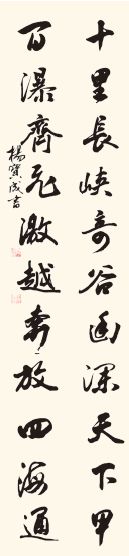 十里長峽奇谷幽深天下甲
百瀑齊飛激越奔放四海通
楊寶成書